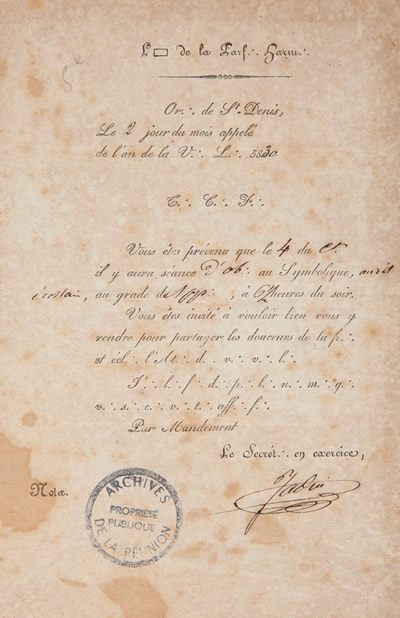 L▭ de la Parf∴ Harm∴
Or∴ de St Denis,
Le 2 jour du mois appelé
de l'an de la V∴ L∴ 5830
T∴ C∴ F∴
Vous êtes prévenu que le 4 du Ct
il y aura séance d'ob∴ au Symbolique,
au grade de App∴, à 6 heures du soir.
Vous êtes invité à vouloir bien vous y
rendre pour partager les douceurs de la f∴
et écl∴ l'At∴ d∴ v∴ v∴ l∴
J∴ l∴ f∴ d∴ p∴ l∴ n∴ m∴ q∴
v∴ s∴ c∴ v∴ t∴ aff∴ f∴
Par Mandement
Le Secrét∴ en exercice,
Nota.
ARCHIVES
PROPRIÉTÉ
PUBLIQUE
DE LA RÉUNION